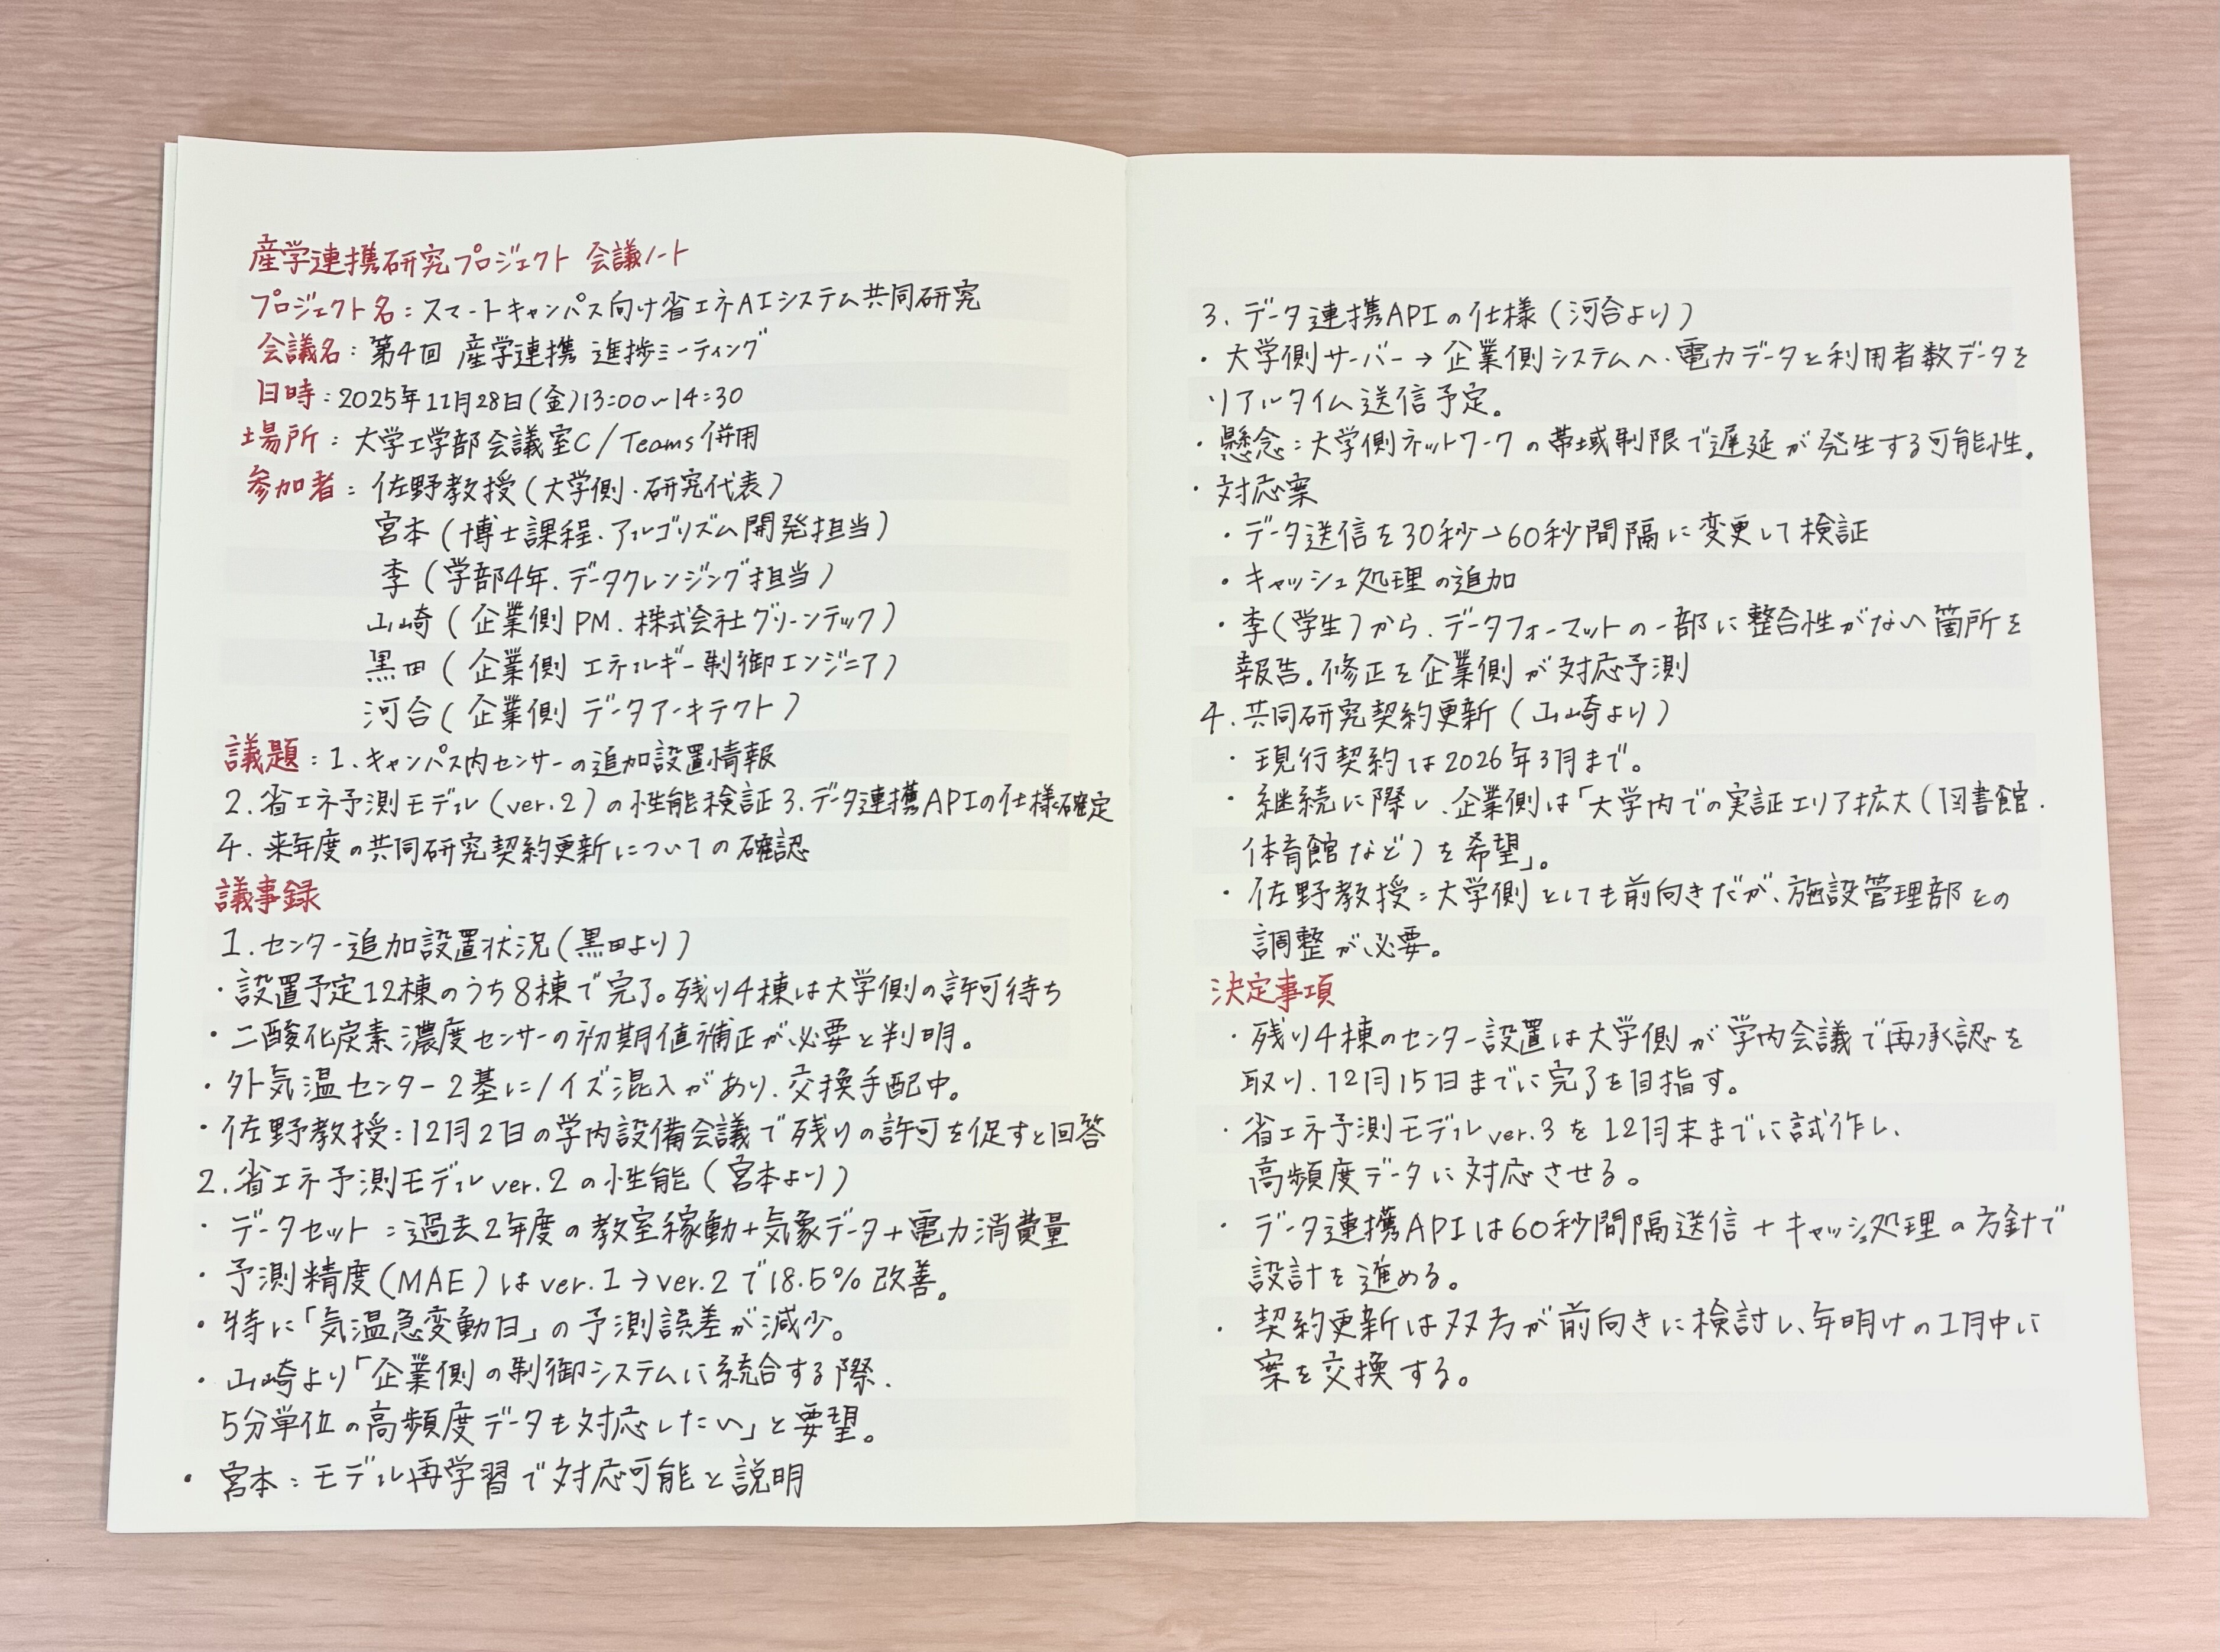 産学連携研究プロジェクト 会議ノート
プロジェクト名：スマートキャンパス向け省エネAIシステム共同研究
会議名：第4回 産学連携 進捗ミーティング
日時：2025年11月28日(金)13:00〜14:30
場所：大学工学部会議室C/Teams併用
参加者：佐野教授(大学側・研究代表)
宮本(博士課程、アルゴリズム開発担当)
李(学部4年、データクレンジング担当)
山崎(企業側PM、株式会社グリーンテック)
黒田(企業側 エネルギー制御エンジニア)
河合(企業側 データアーキテクト)
議題：1、キャンパス内センサーの追加設置情報
2、省エネ予測モデル(ver.2)の性能検証3、データ連携APIの仕様確定
4、来年度の共同研究契約更新についての確認
議事録
1.センター追加設置状況(黒田より)
・設置予定12棟のうち8棟で完了。残り4棟は大学側の許可待ち
・二酸化炭素濃度センサーの初期値補正が必要と判明。
・外気温センター2基にノイズ混入があり、交換手配中。
・佐野教授：12月2日の学内設備会議で残りの許可を促すと回答
2.省エネ予測モデルver.2の性能(宮本より)
・データセット：過去2年度の教室稼動+気象データ+電力消費量
・予測精度(MAE)はver.1→ver.2で18.5%改善。
・特に「気温急変動日」の予測誤差が減少。
・山崎より「企業側の制御システムに統合する際、
5分単位の高頻度データも対応したい」と要望。
・宮本：モデル再学習で対応可能と説明
3.データ連携APIの仕様(河合より)
・大学側サーバー→企業側システムへ、電力データと利用者数データを
リアルタイム送信予定。
・懸念：大学側ネットワークの帯域制限で遅延が発生する可能性。
・対応案
・データ送信を30秒→60秒間隔に変更して検証
・キャッシュ処理の追加
・李(学生)から、データフォーマットの一部に整合性がない箇所を
報告。修正を企業側が対応予測
4.共同研究契約更新(山崎より)
・現行契約は2026年3月まで。
・継続に際し、企業側は「大学内での実証エリア拡大(図書館、
体育館など)を希望」。
・佐野教授：大学側としても前向きだが、施設管理部との
調整が必要。
決定事項
・残り4棟のセンター設置は大学側が学内会議で再承認を
取り、12月15日までに完了を目指す。
・省エネ予測モデルver.3を12月末までに試作し、
高頻度データに対応させる。
・データ連携APIは60秒間隔送信+キャッシュ処理の方針で
設計を進める。
・契約更新は双方が前向きに検討し、年明けの1月中に
案を交換する。